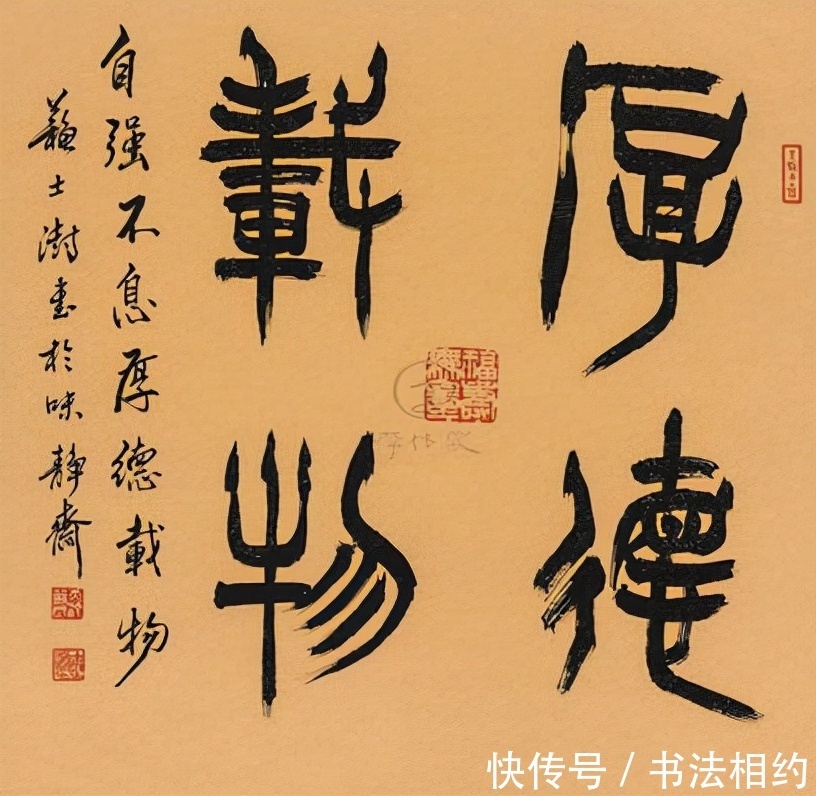 厚德
載物
自强不息厚德載物
蘇士澍書於味靜齋
福壽無疆
快传号 / 书法相约